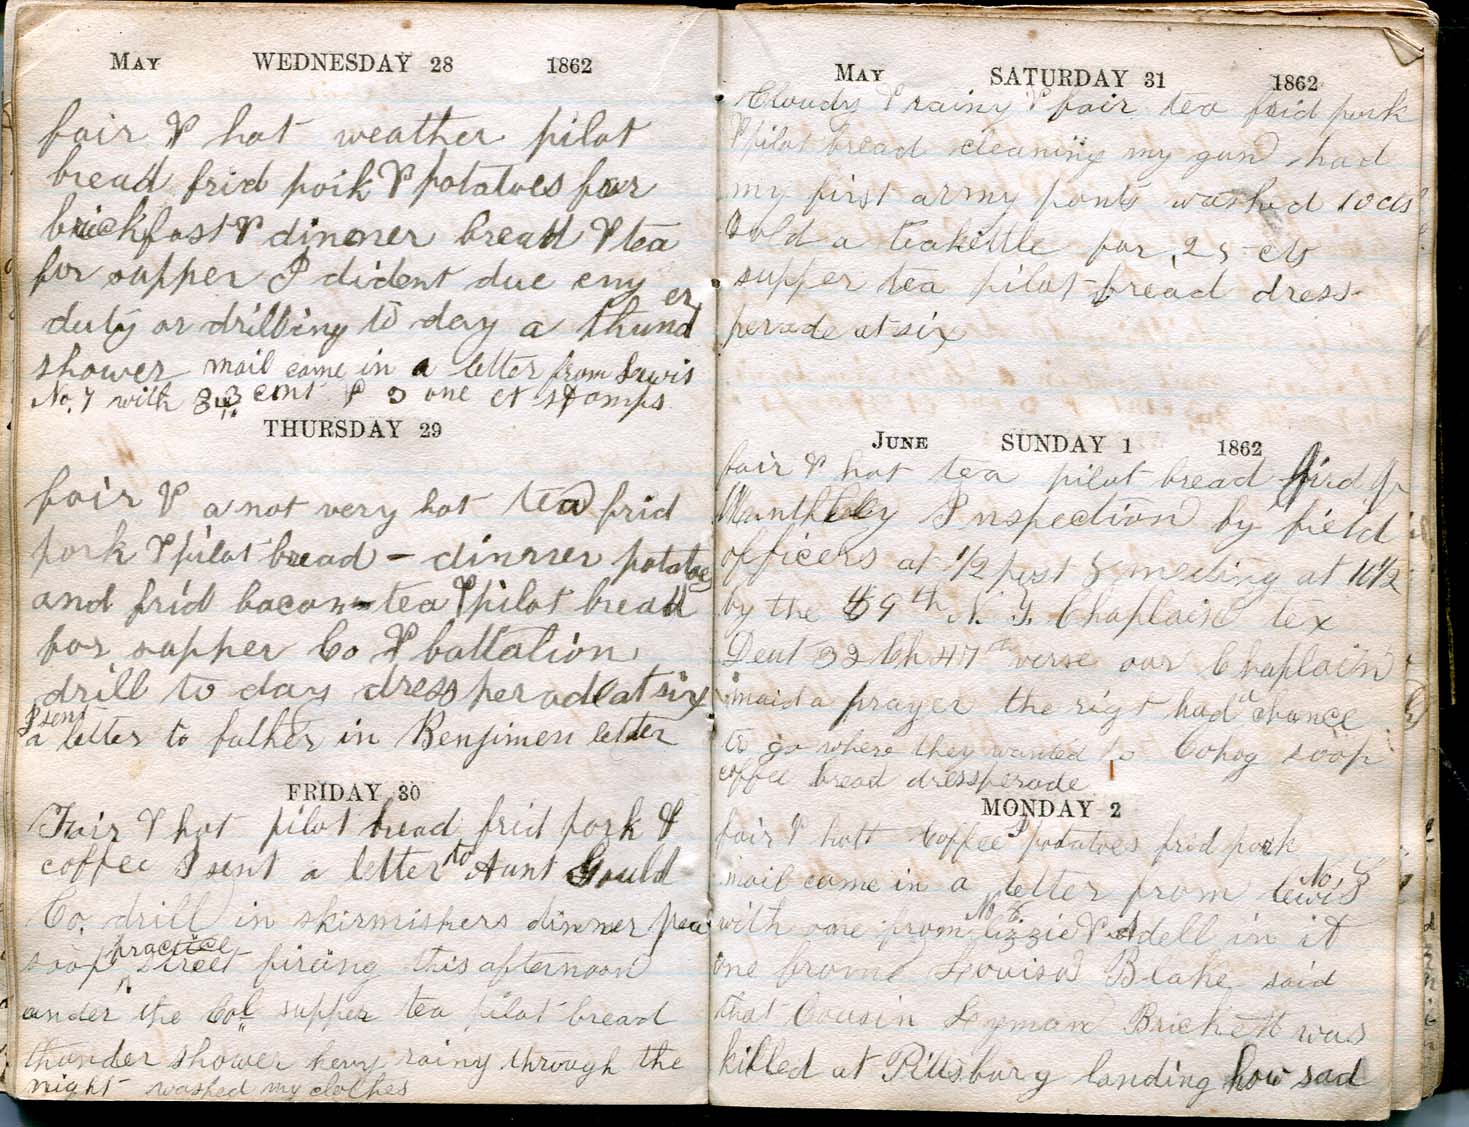 May WEDNESDAY 28 1862
fair & hot weather pilot
bread frid poik & potatoes for
brickfast & dinner bread & tea
for supper I dident due eny
duty or drilling to day a thund er
shower mail came in a letter from Lewis
No. 7 with cent & 3 one ct stamps
THURSDAY 29
fair & a not very hot tea frid
pork & pilot bread - dinner potatoes
and frid bacon - tea & pilot bread
for supper Co & battalion
drill to day dress perade at six
I sent
a letter to father in Benjimen letter
FRIDAY 30
Fair & hot pilot bread frid pork &
coffee I sent a letter to Aunt Gould
Co. drill in skirmishers dinner pea
soop practice street fireing this afternoon
under the Col supper tea pilot bread
thunder shower hevy rainy through the
night washed my clothes
May SATURDAY 31 1862
Cloudy & rainy & fair tea frid pork
& pilot bread cleaning my gun had
my first army pants washed 10 cts
Sold a teakettle for 25 cts
supper tea pilot bread dress-
perade at six
June SUNDAY 1 1862
fair & hot tea pilot bread
Munthley Inspection by field
officers at 1/2 past 8 meeting at 10 1/2
by the 9th N. Y. Chaplain tex
Deut 32 Ch 47th verse our Chaplain
maid a prayer the rigt had a chance
to go where they wanted to Cohog soop
coffee bread dressperade
MONDAY 2
fair & hott Coffee & potatoes frid pork
mail came in a letter from Lewis No 8
with one from No 6 Lizzie & Adell in it
one frome Louisa Blake said
that Cousin Lyman Brickett was
killed at Pittsburg landing how sad